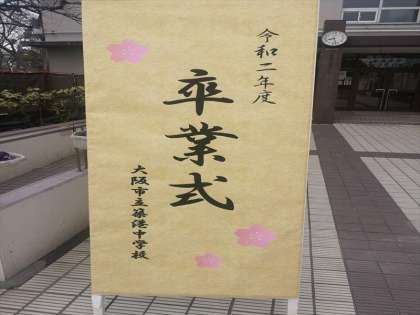 令和二年度
卒業式
大阪市立築港中学校